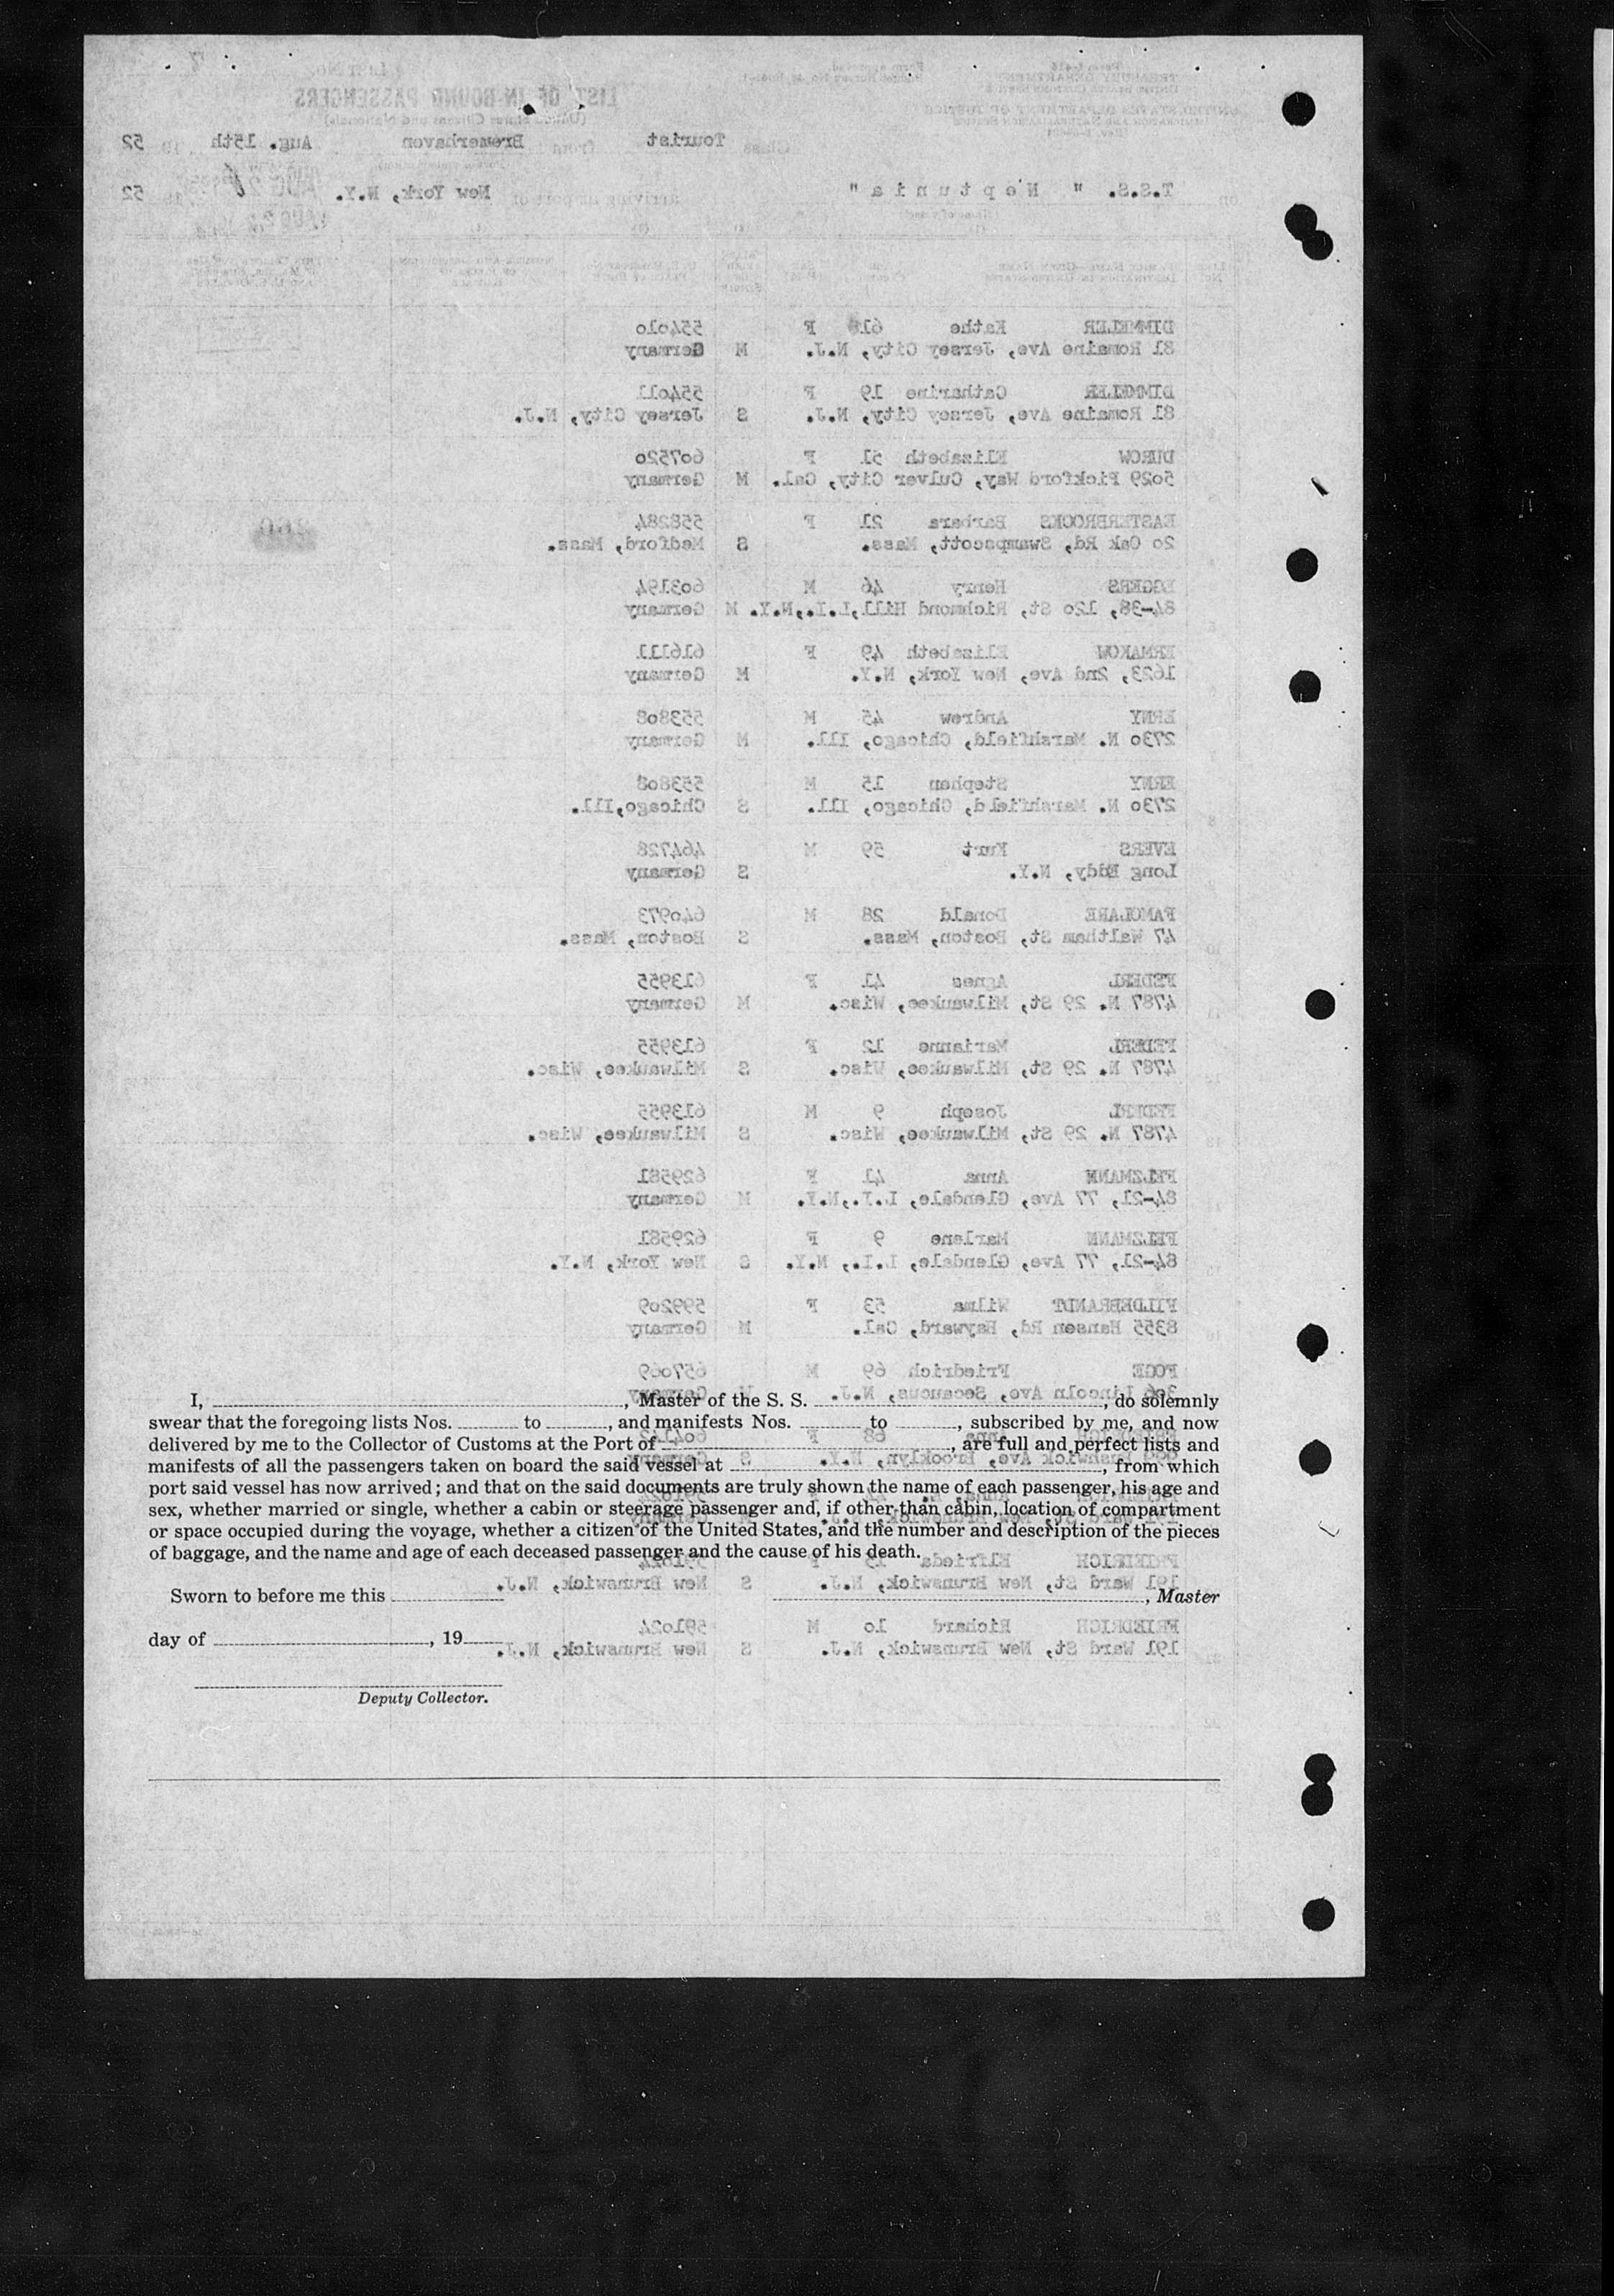 LIST OF IN-BOUND PASSENGERS
(United States Citizens and Nationals)
Tourist from Bremerhaven Aug. 15th 52
T.S.S. " Neptunia " arriving at port of New York, N.Y. 52
DIMMELER Kathe 61 F 554010
81 Romaine Ave, Jersey City, N.J. M Germany
DIMMELER Catharine 19 F 554011
81 Romaine Ave, Jersey City, N.J. S Jersey City, N.J.
DUROW Elisabeth 51 F 607520
5029 Pickford Way, Culver City, Cal. M Germany
EASTERBROOKS Barbara 21 F 558284
20 Oak Rd, Swampscott, Mass. S Medford, Mass.
EGGERS Henry 46 M 603194
84-38, 120 St, Richmond Hill,L.I.,N.Y. M Germany
ERMAKOW Elisabeth 49 F 616111
1623, 2nd Ave, New York, N.Y. M Germany
ERNY Andrew 45 M 553808
2730 N. Marshfield, Chicago, Ill. M Germany
ERNY Stephan 15 M 553808
2730 N. Marshfield, Chicago, Ill. S Chicago,Ill.
EVERS Kurt 59 M 464728
Long Eddy, N.Y. S Germany
FAMOLARE Donald 28 M 640973
47 Waltham St, Boston, Mass. S Boston, Mass.
FEDERL Agnes 41 F 613955
4787 N. 29 St, Milwaukee, Wisc. M Germany
FEDERL Marianne 12 F 613955
4787 N. 29 St, Milwaukee, Wisc. S Milwaukee, Wisc.
FEDERL Joseph 9 M 613955
4787 N. 29 St, Milwaukee, Wisc. S Milwaukee, Wisc.
FELZMANN Anna 41 F 629581
84-21, 77 Ave, Glendale, L.I.,N.Y. M Germany
FELZMANN Marlene 9 F 629581
84-21, 77 Ave, Glendale, L.I., N.Y. S New York, N.Y.
FILDEBRANDT Wilma 53 F 599209
8355 Hansen Rd, Hayward, Cal. M Germany
FOGE Friedrich 69 M 657069
306 Lincoln Ave, Secaucus, N.J. Germany
I, , Master of the S. S. , do solemnly
swear that the foregoing lists Nos. to , and manifests Nos. to , subscribed by me, and now
delivered by me to the Collector of Customs at the Port of , are full and perfect lists and
manifests of all the passengers taken on board the said vessel at , from which
port said vessel has now arrived; and that on the said documents are truly shown the name of each passenger, his age and
sex, whether married or single, whether a cabin or steerage passenger and, if other than cabin, location of compartment
or space occupied during the voyage, whether a citizen of the United States, and the number and description of the pieces
of baggage, and the name and age of each deceased passenger and the cause of his death.
FRIEDRICH Elfrieda F
191 Ward St, New Brunswick, N.J. S New Brunswick, N.J.
Sworn to before me this , Master
FRIEDRICH Richard 10 M 591024
day of , 19
191 Ward St, New Brunswick, N.J. S New Brunswick, N.J.
Deputy Collector.